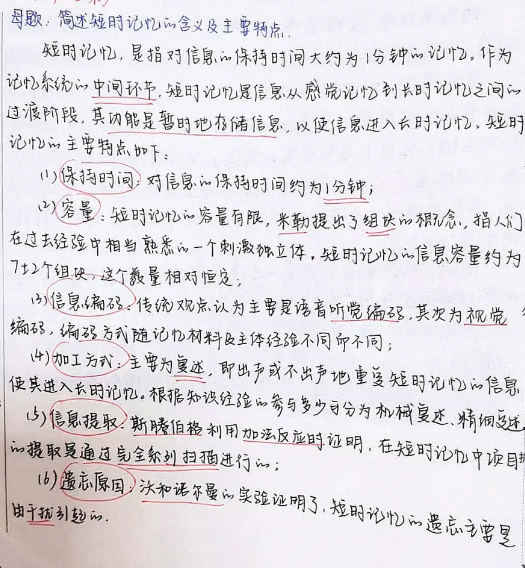 母题：简述短时记忆的含义及主要特点.
短时记忆，是指对信息的保持时间大约为1分钟的记忆。作为
记忆系统的中间环节，短时记忆是信息从感觉记忆到长时记忆之间的
过渡阶段，其功能是暂时地存储信息，以使信息进入长时记忆。短时
记忆的主要特点如下：
(1)保持时间：对信息的保持时间约为1分钟；
(2)容量：短时记忆的容量有限，米勒提出了组块的概念，指人们
在过去经验中相当熟悉的一个刺激独立体。短时记忆的信息容量约为
7±2个组块，这个数量相对恒定；
(3)信息编码：传统观点认为主要是语音听觉编码，其次为视觉
编码，编码方式随记忆材料及主体经验不同而不同；
(4)加工方式：主要为复述，即出声或不出声地重复短时记忆的信息
使其进入长时记忆。根据知识经验的参与多少可分为机械复述、精细复述.
(5)信息提取：斯腾伯格利用加法反应时证明，在短时记忆中项目
的提取是通过完全系列扫描进行的；
(6)遗忘原因：沃和诺尔曼的实验证明了，短时记忆的遗忘主要是
由干扰引起的.